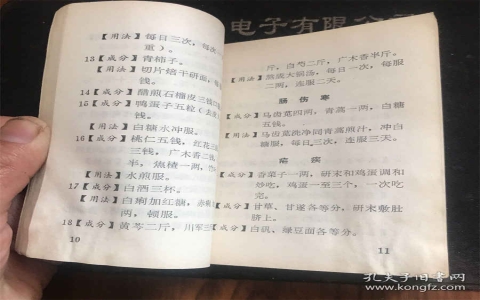 电子有限公
【用法】每日三次,每次
重)。
13【成分】青柿子。
【用法】切片焙干研面,
钱。
14【成分】醋煎石榴皮三钱
15【成分】鸭蛋子五粒(去
钱。
【用法】白糖水冲服。
16【成分】桃仁五钱,红花三
三钱,广木香二
半,焦楂一两,
【用法】水煎服。
17【成分】白酒三杯。
【用法】白痢加红糖,赤痢
两,顿服。
18【成分】黄芩二斤,川军三
10
斤,白芍二斤,广木香半斤。
【用法】熬成大锅汤,每日一次,每服
二两,连服二天。
肠伤寒
【成分】马齿苋四两,青蒿一两,白糖
五钱。
【用法】马齿苋洗净同青蒿煎汁,冲白
糖服,每日三次,连服三天。
疟疾
【成分】杏菜子一两,研末和鸡蛋调和
炒吃,鸡蛋一至三个,一次吃
完。
【成分】甘草、甘遂各等分,研末敷肚
脐上。
【成分】白矾、绿豆面各等分。
11
孔夫子旧书网
www.kongfz.com